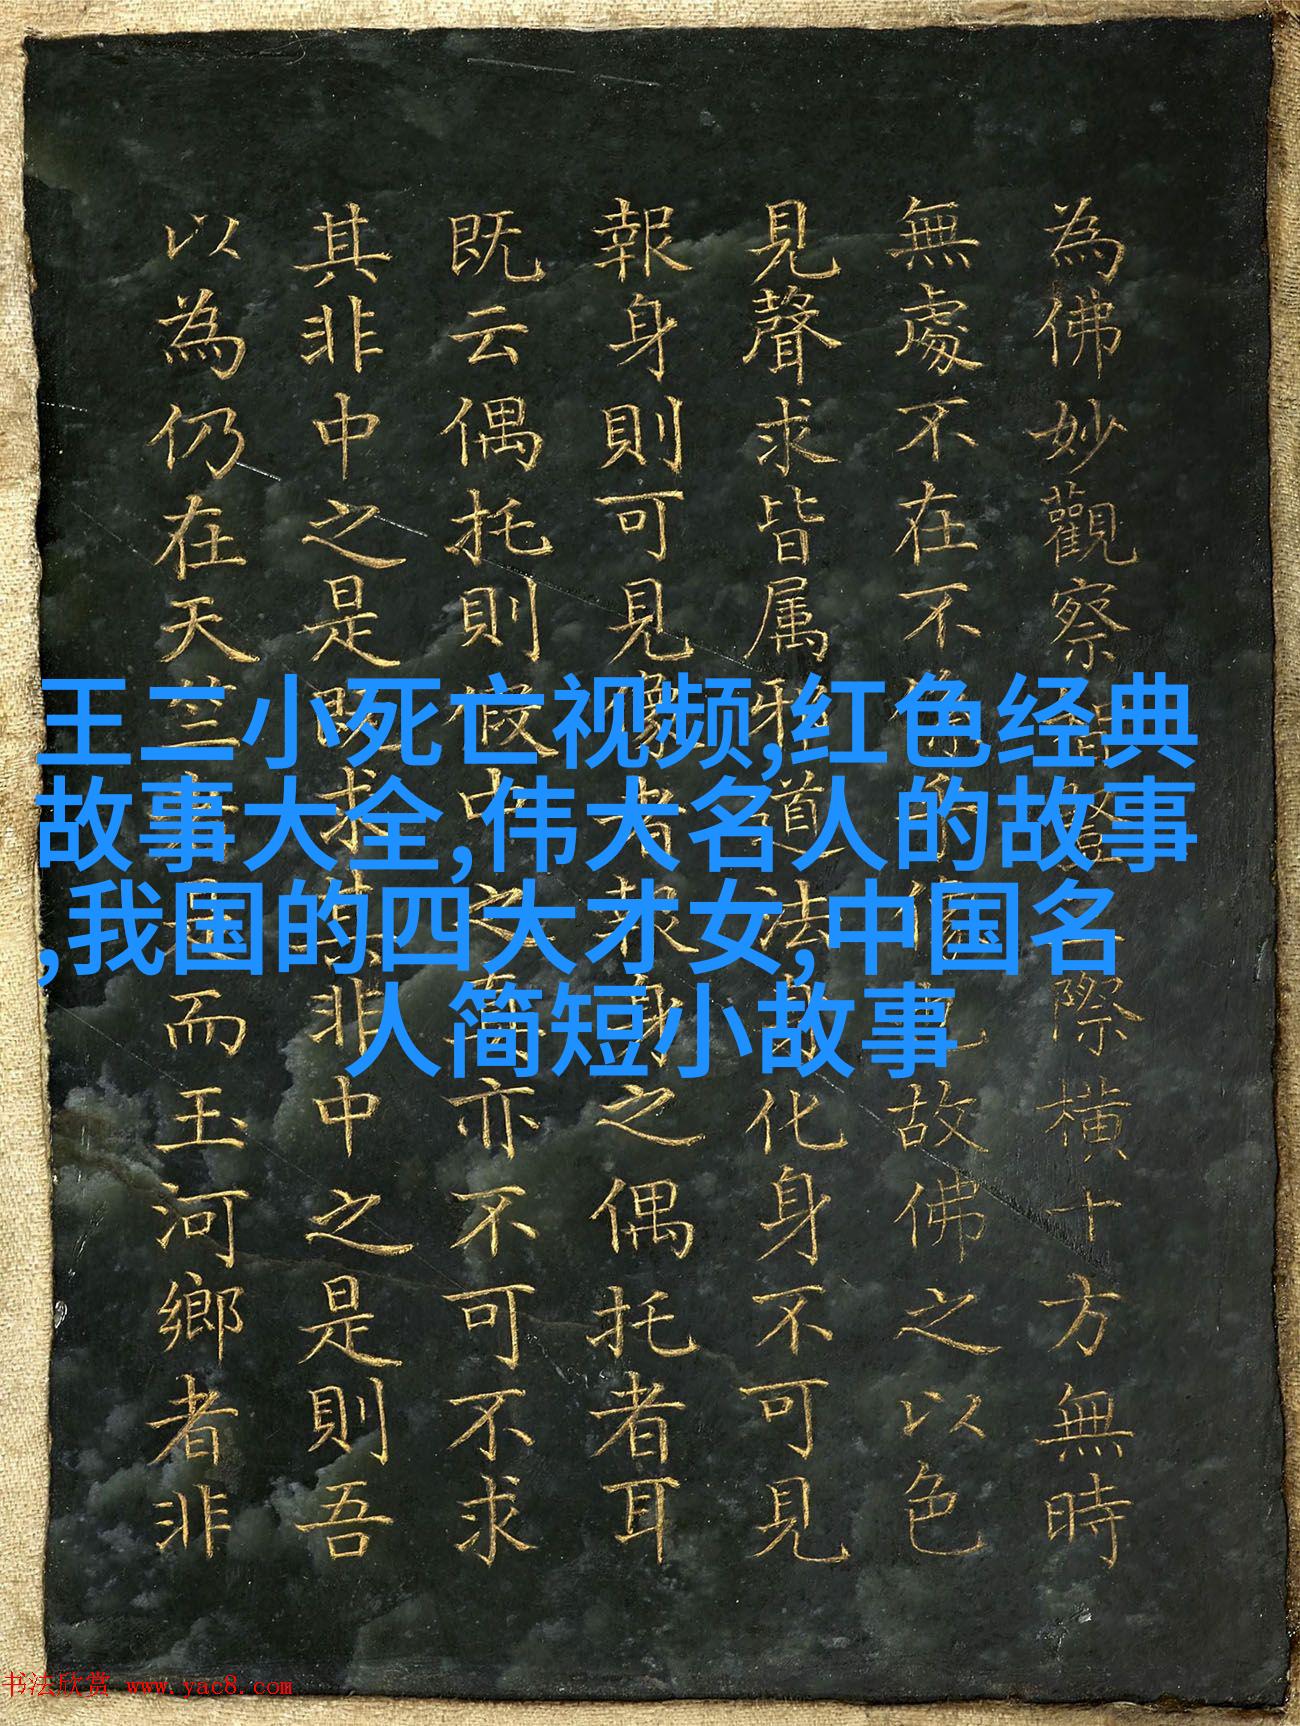 為佛妙觀察證際橫十方無時
無處不在不故佛之以色
見聲求皆属雅道法身化身不可見
報身則可見像者報身之偶托者耳
既云偶托則假中之真亦不可不求
其非中之是既求其非中之是則吾
以為仍在天竺而玉河鄉者非
王二小死亡视频,红色经典
故事大全,伟大名人的故事
,我国的四大才女,中国名
人简短小故事
书法欣赏 www.yac8.com